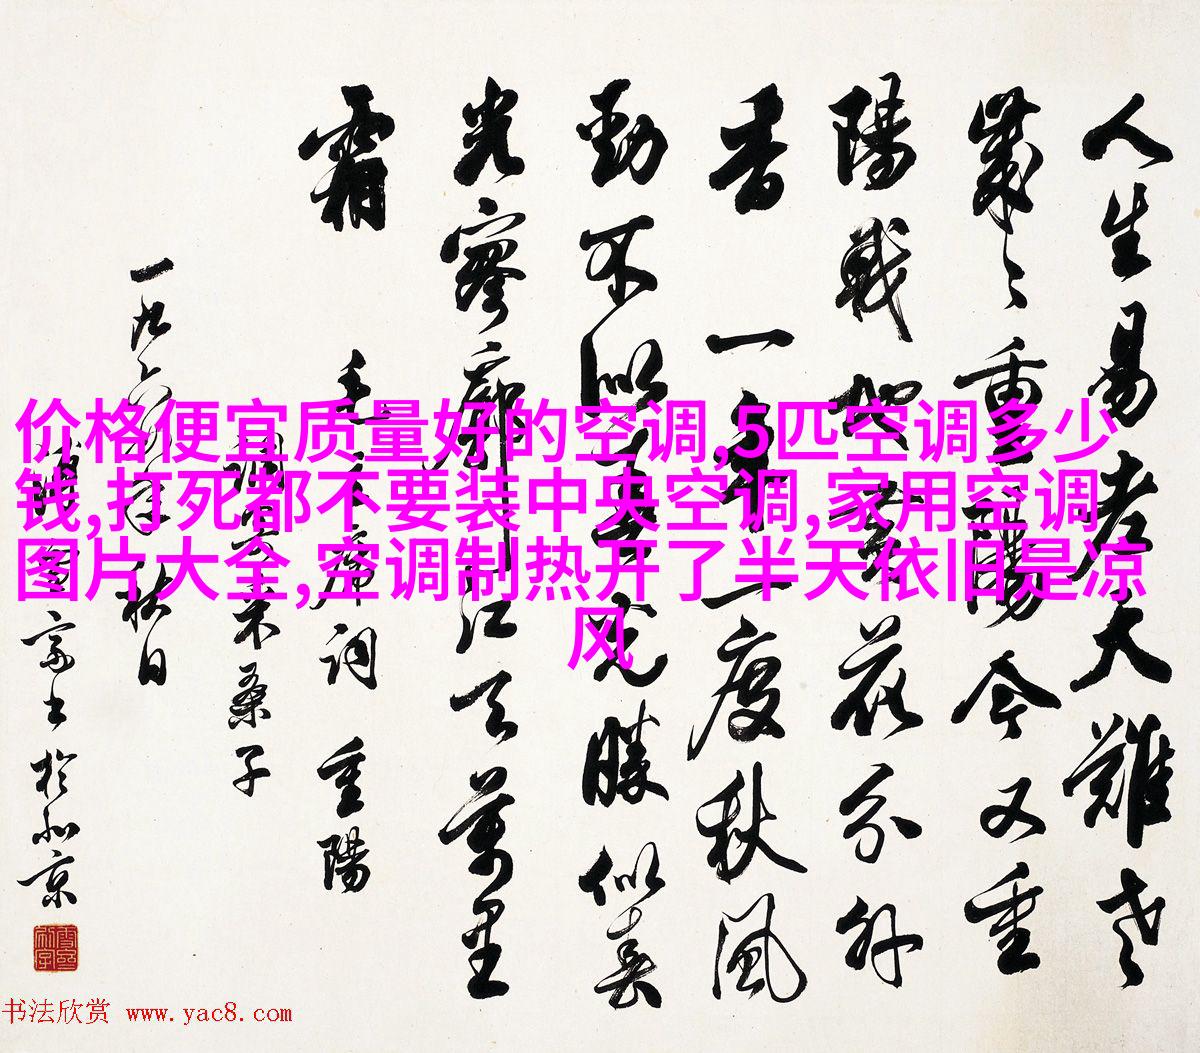 人生易老天難老
歲々重陽今又重
陽戰地黃花分外
香 一年一度秋風
勁不似春光勝似春
光寥廓江天萬里
霜
毛主席詞 重陽
調寄采桑子
一九六 年秋日
書於北京
价格便宜质量好的空调,5匹空调多少
钱,打死都不要装中央空调,家用空调
图片大全,空调制热开了半天依旧是凉
风
书法欣赏 www.yac8.com